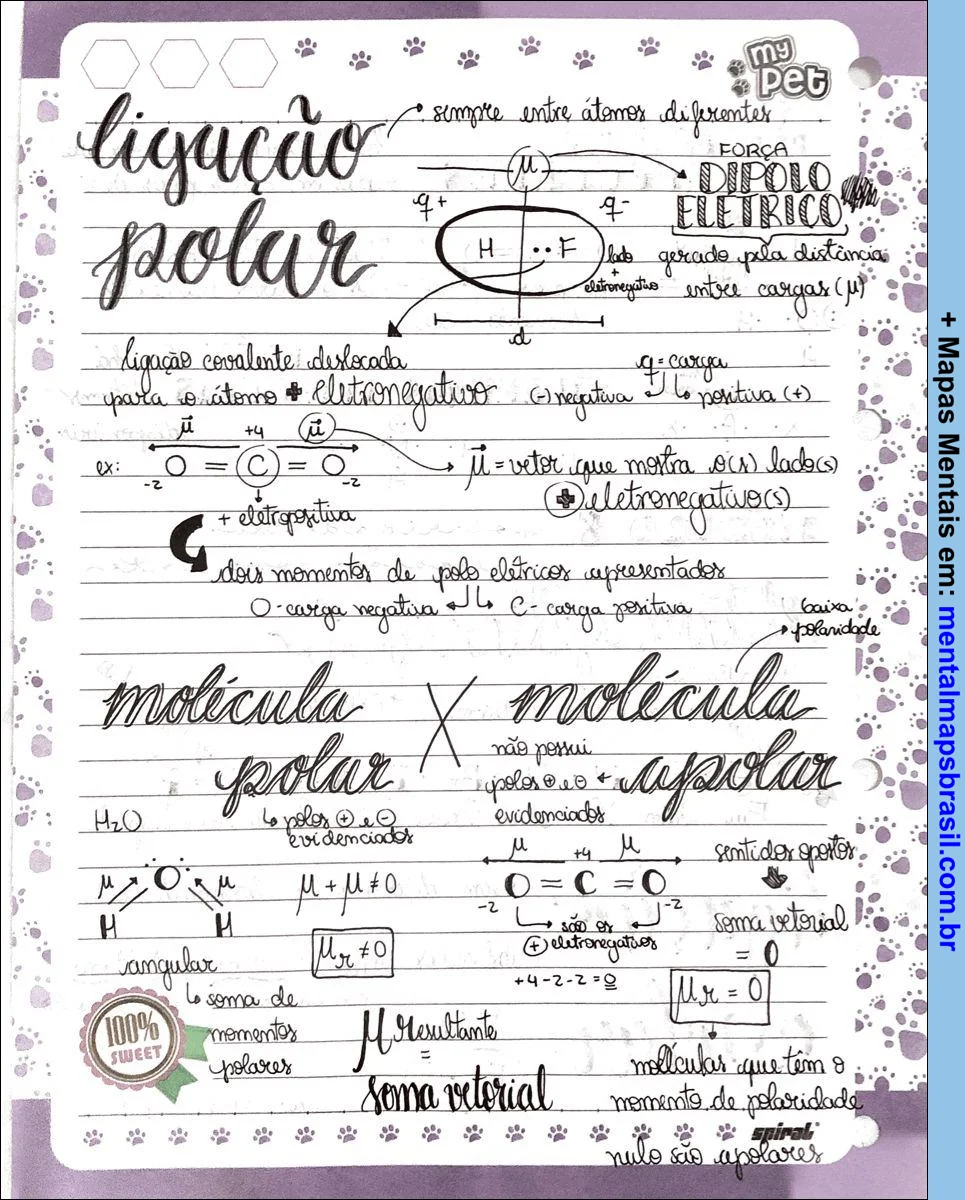 my pet
ligação
polar
sempre entre átomos diferentes
μ
FORÇA
DIPOLO
ELÉTRICO
gerado pela distância
entre cargas (μ)
q+
q-
H ·· F
lado
+
eletronegativo
d
ligação covalente deslocada
para o átomo + eletronegativo
q = carga
(-) negativa
positiva (+)
μ⃗ +4 μ⃗
ex: O = C = O
-2 -2
+ eletropositiva
μ⃗ = vetor que mostra o(s) lado(s)
+ eletronegativo(s)
dois momentos de polo elétricos apresentados
O - carga negativa
C - carga positiva
baixa
polaridade
molécula
polar
X
molécula
apolar
não possui
polos ⊕ e ⊖
evidenciados
H₂O
polos ⊕ e ⊖
evidenciados
μ O μ
H H
angular
soma de
momentos
polares
μ + μ ≠ 0
μr ≠ 0
μ +4 μ
O = C = O
-2 -2
são os
⊕ eletronegativos
+4-2-2=0
sentidos opostos
soma vetorial
= 0
μr = 0
moléculas que têm o
momento de polaridade
nulo são apolares
μ resultante
=
soma vetorial
100%
SWEET
spiral
+ Mapas Mentais em: mentalmapsbrasil.com.br